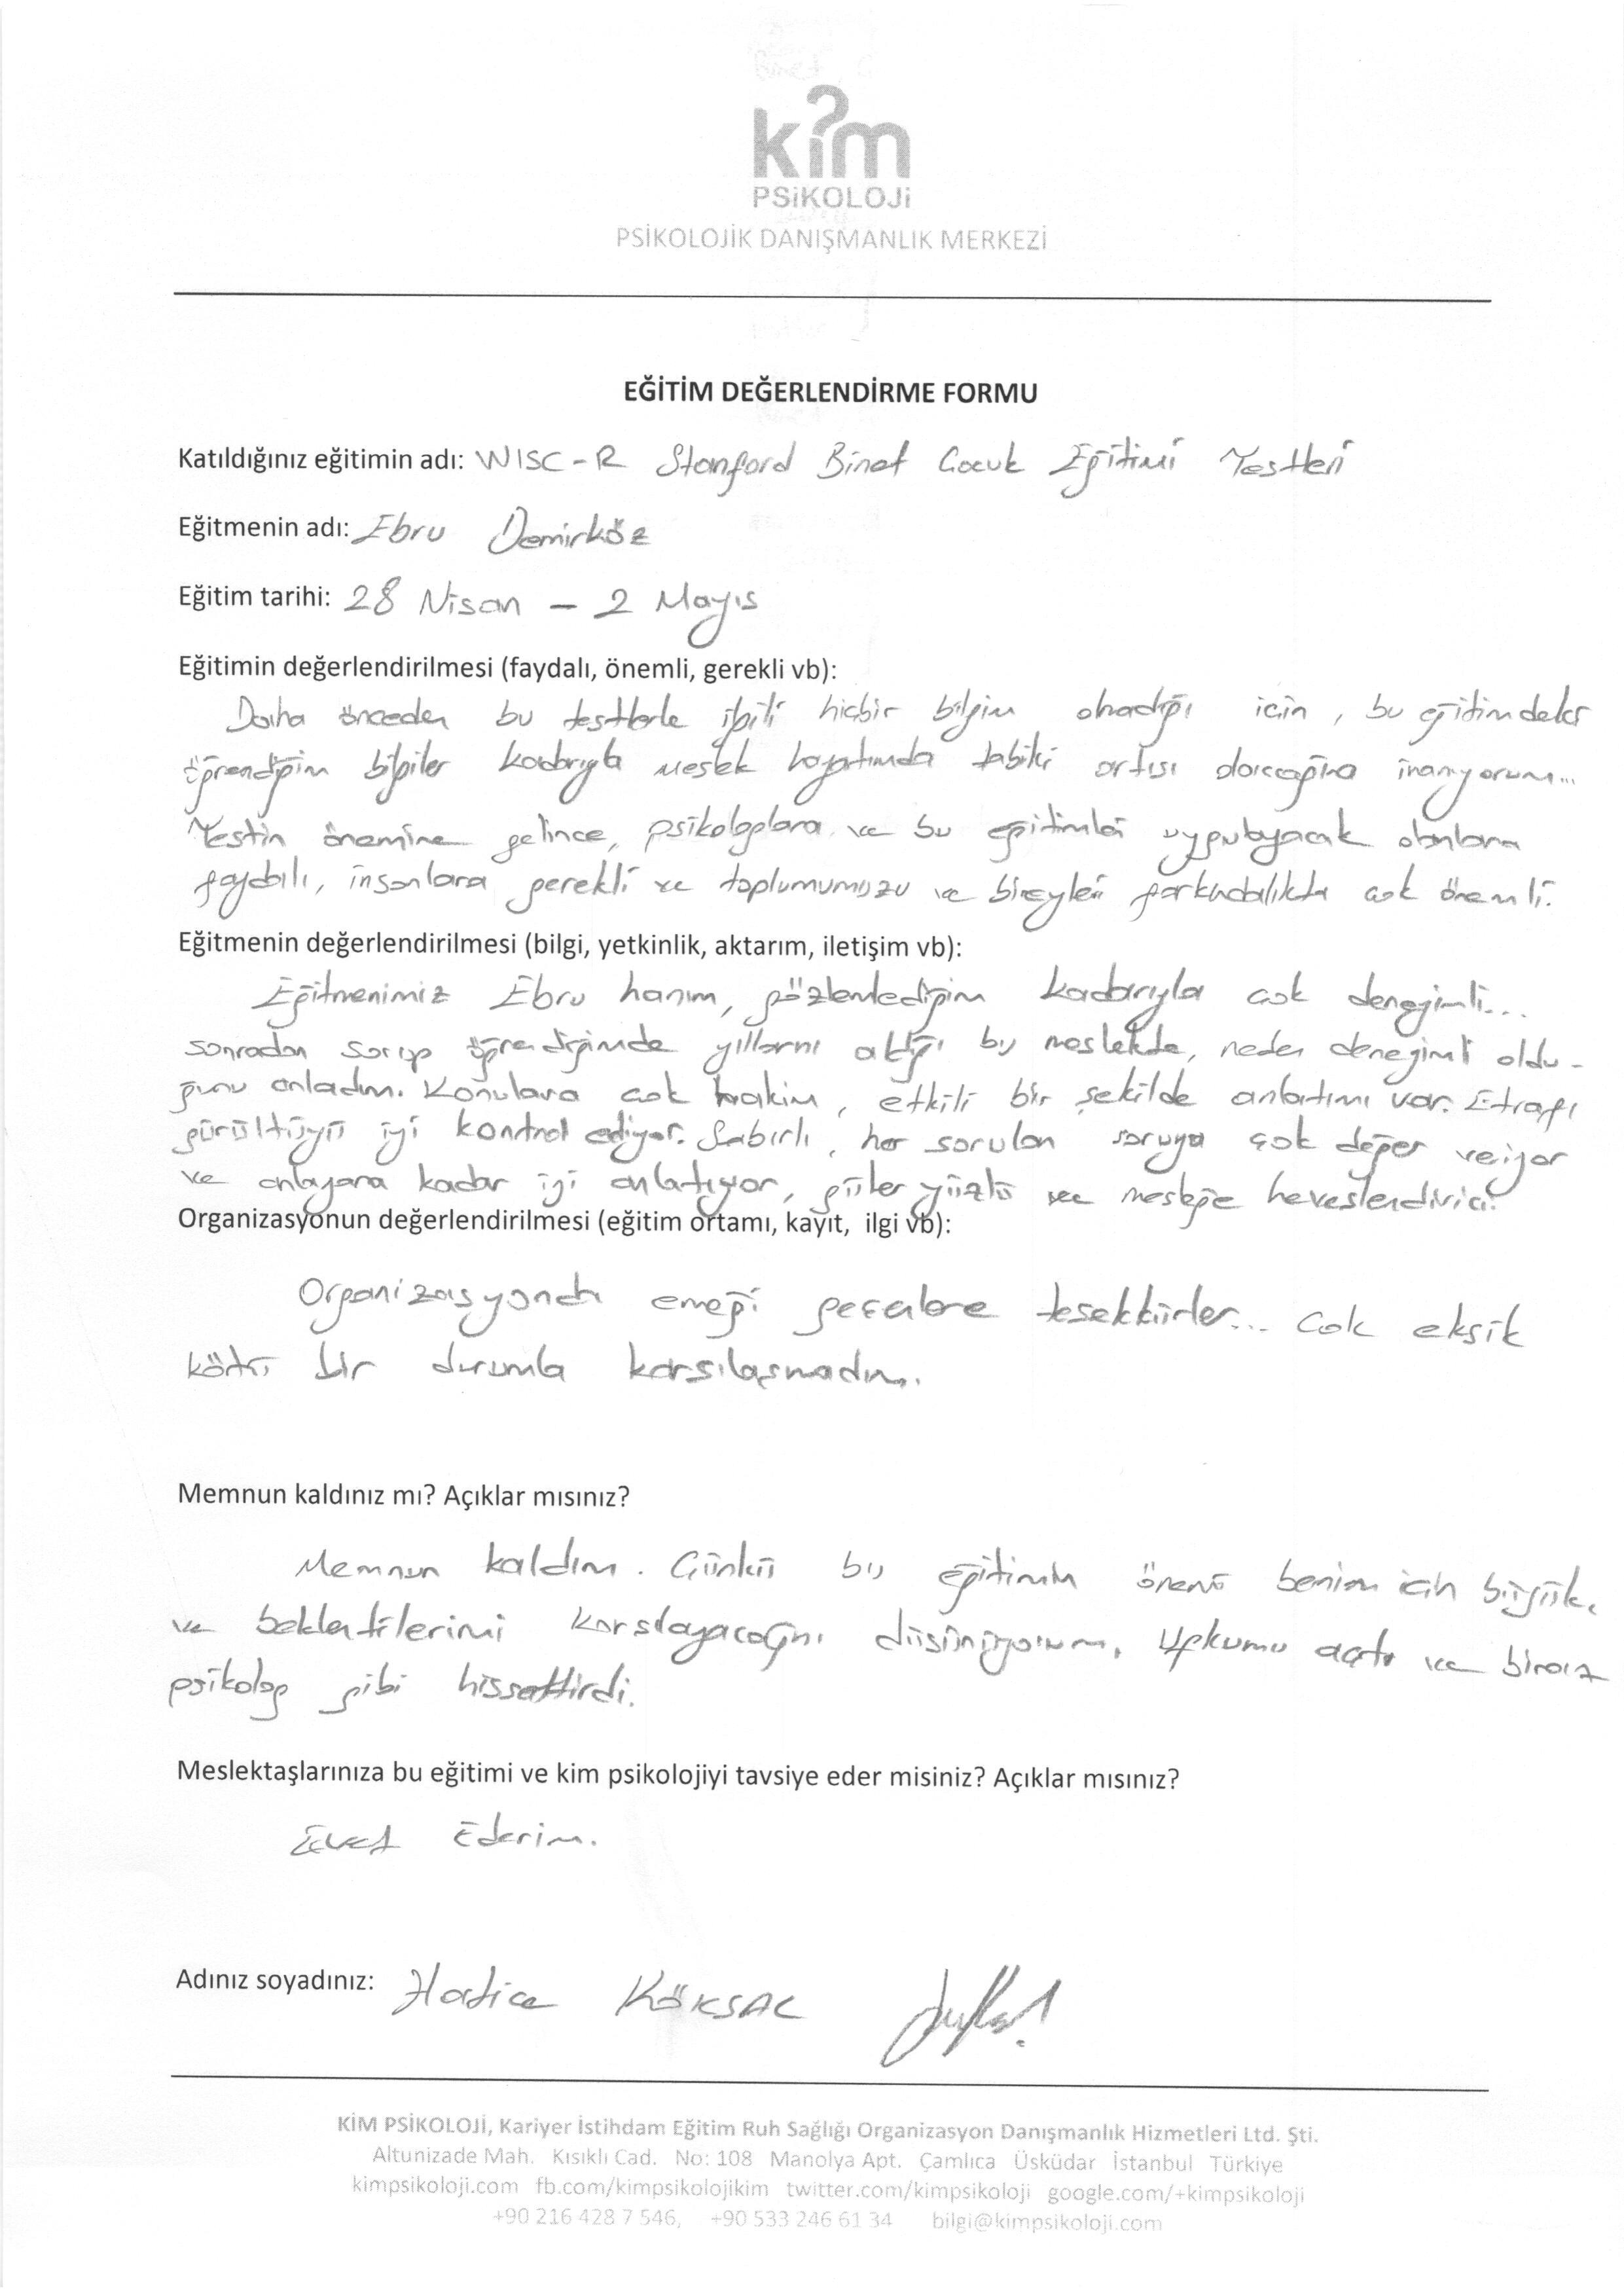 kim
PSİKOLOJİ
PSİKOLOJİK DANIŞMANLIK MERKEZİ
EĞİTİM DEĞERLENDİRME FORMU
Katıldığınız eğitimin adı: WISC-R Stanford Binet Çocuk Eğitimi Testleri
Eğitmenin adı: Ebru Demirköz
Eğitim tarihi: 28 Nisan - 2 Mayıs
Eğitimin değerlendirilmesi (faydalı, önemli, gerekli vb):
Daha önceden bu testlerle ilgili hiçbir bilgim olmadığı için, bu eğitimdeki
öğrendiğim bilgiler kadarıyla meslek hayatımda tabiki artısı olacağına inanıyorum...
Testin önemine gelince, psikologlara ve bu eğitimleri uygulayacak olanlara
faydalı, insanlara gerekli ve toplumumuzu ve bireyleri farkındalıkta çok önemli.
Eğitmenin değerlendirilmesi (bilgi, yetkinlik, aktarım, iletişim vb):
Eğitmenimiz Ebru hanım, gözlemlediğim kadarıyla çok deneyimli...
sonradan sorup öğrendiğimde yıllarını aldığı bu meslekte, neden deneyimli oldu-
ğunu anladım. Konulara çok hakim, etkili bir şekilde anlatımı var. Etrafı
gürültüyü iyi kontrol ediyor. Sabırlı, her sorulan soruya çok değer veriyor
ve anlayana kadar iyi anlatıyor, güler yüzlü ve mesleğe heveslendirici.
Organizasyonun değerlendirilmesi (eğitim ortamı, kayıt, ilgi vb):
Organizasyonda emeği geçenlere teşekkürler... Çok eksik
kötü bir durumla karşılaşmadım.
Memnun kaldınız mı? Açıklar mısınız?
Memnun kaldım. Çünkü bu eğitimin önemi benim için büyük.
ve beklentilerimi karşılayacağını düşünüyorum. Ufkumu açtı ve biraz
psikolog gibi hissettirdi.
Meslektaşlarınıza bu eğitimi ve kim psikolojiyi tavsiye eder misiniz? Açıklar mısınız?
Evet Ederim.
Adınız soyadınız: Hatice KÖKSAL
KİM PSİKOLOJİ, Kariyer İstihdam Eğitim Ruh Sağlığı Organizasyon Danışmanlık Hizmetleri Ltd. Şti.
Altunizade Mah. Kısıklı Cad. No: 108 Manolya Apt. Çamlıca Üsküdar İstanbul Türkiye
kimpsikoloji.com fb.com/kimpsikolojikim twitter.com/kimpsikoloji google.com/+kimpsikoloji
+90 216 428 7 546, +90 533 246 61 34 bilgi@kimpsikoloji.com